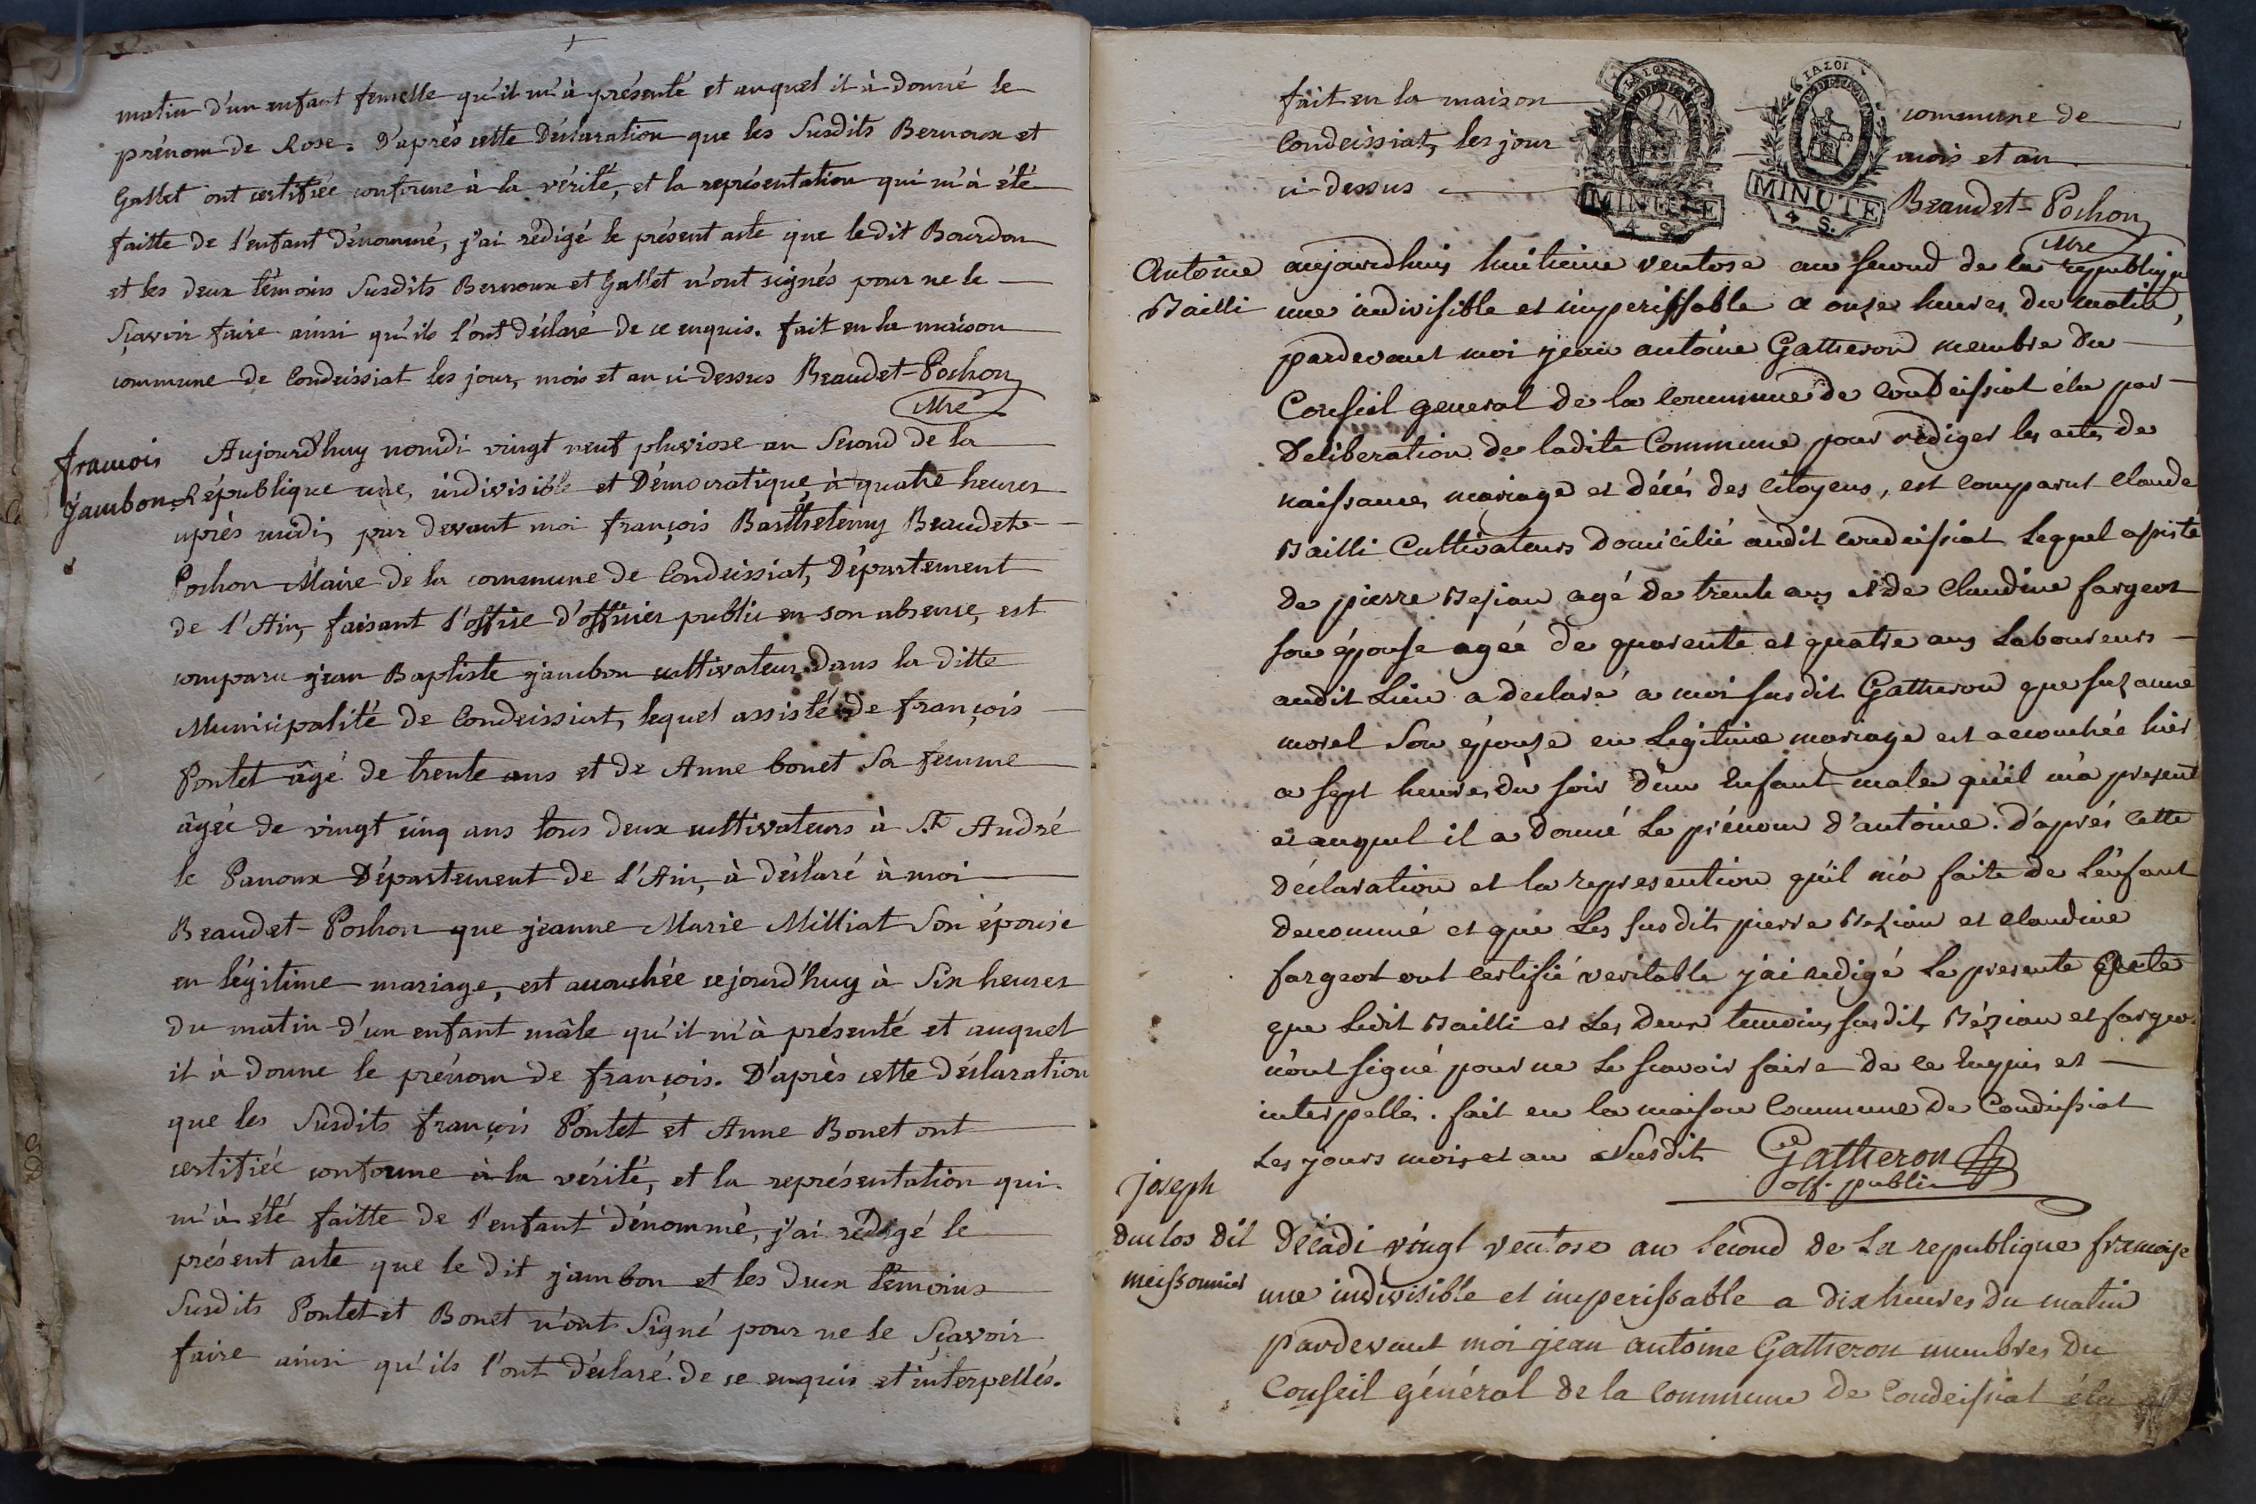 matin d'un enfant femelle qu'il m'à présenté et auquel il à donné le
prénom de Rose. D'après cette Déclaration que les Susdits Bernoux et
Gallet ont certifiée conforme à la vérité, et la représentation qui m'à été
faitte de l'enfant dénommé, j'ai rédigé le présent acte que le dit Bourdon
et les deux témoins Susdits Bernoux et Gallet n'ont signés pour ne le
Sçavoir faire ainsi qu'ils l'ont déclaré de ce enquis. fait en la maison
commune de Condeissiat les jour, mois et an ci-dessus Beaudet-Pochon
Mre
francois
jambon
Aujourd'huy nonidi vingt neuf pluviose an Second de la
République une, indivisible et Démocratique à quatre heures
après midi, par devant moi françois Barthelemy Beaudet-
Pochon Maire de la commune de Condeissiat, Département
de l'Ain, faisant l'office d'officier public en son absence, est
comparu jean Baptiste jambon cultivateur dans la ditte
Municipalité de Condeissiat, lequel assisté de françois
Pontet âgé de trente ans et de Anne bonet Sa femme
âgée de vingt cinq ans tous deux cultivateurs à St André
le Panoux Département de l'Ain, à déclaré à moi
Beaudet-Pochon que jeanne Marie Milliat Son épouse
en légitime mariage, est accouchée cejourd'huy à Six heures
du matin d'un enfant mâle qu'il m'à présenté et auquel
il à donné le prénom de françois. D'après cette déclaration
que les Susdits françois Pontet et Anne Bonet ont
certifiée conforme à la vérité, et la représentation qui
m'à été faitte de l'enfant dénommé, j'ai rédigé le
présent acte que le dit jambon et les deux témoins
Susdits Pontet et Bonet n'ont Signé pour ne le Sçavoir
faire ainsi qu'ils l'ont déclaré de ce enquis et interpellés.
fait en la maison commune de
Condeissiat, les jour mois et an
ci-dessus Beaudet-Pochon
Mre
MINUTE
4 S.
MINUTE
4 S.
Antoine
Bailli
aujourdhuy huitieme ventose an second de la republique
une indivisible et imperissable a onze heures du matin,
pardevant moi jean antoine Gatheron membre du
Conseil general de la commune de Condeissiat élu par
Deliberation de ladite Commune pour rediger les actes de
naissance, mariage et décés des citoyens, est comparut claude
Bailli Cultivateur domicilié audit condeissiat Lequel assisté
de pierre Bezian agé de trente ans et de Claudine fargeot
son épouse agée de quarente et quatre ans Laboureurs
audit Lieu a declaré a moi susdit Gatheron que suzanne
morel Son épouse en Legitime mariage est accouchée hier
a sept heures du soir d'un Enfant male qu'il m'a presenté
et auquel il a donné Le prénom d'antoine. d'après cette
déclaration et la represention qu'il m'a faite de L'enfant
denommé et que Les susdits pierre Bezian et claudine
fargeot ont certifié veritable j'ai redigé Le presente Acte
que Ledit Bailli et Les deux temoins susdits Bézian et fargeot
n'ont signé pour ne Le scavoir faire de ce Enquis et
interpellés. fait en la maison Commune de Condeissiat
Les jours mois et an Susdit Gatheron
off. public
joseph
duclos dit
meissonnier
Décadi vingt ventose an Second de La republique francoise
une indivisible et imperissable a dix heures du matin
pardevant moi jean antoine Gatheron membres du
Conseil général de la commune de Condeissiat élu